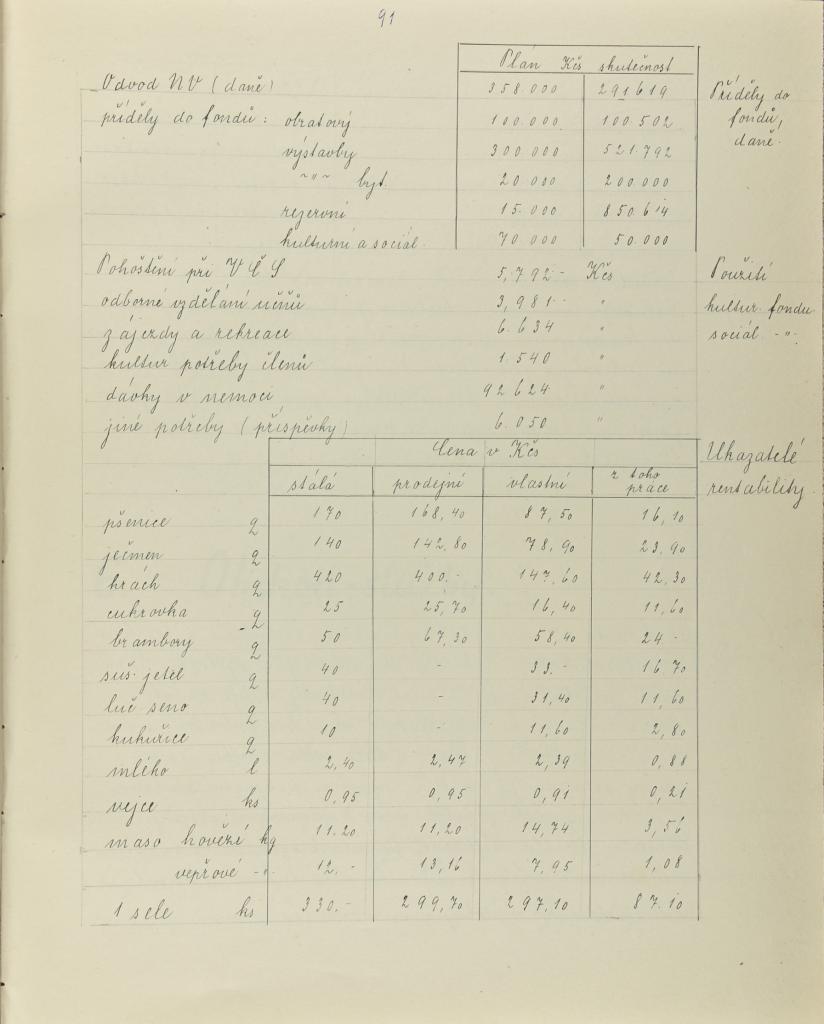 91
Plán Kčs skutečnost
Odvod NV (daně) 358.000 291619 Příděly do
příděly do fondů: obratový 100.000 100.502 fondů,
výstavby 300.000 521.792 daně.
~"~ byt. 20 000 200.000
rezervní 15.000 850.614
kulturní a sociál. 70 000 50.000
Pohoštění při VČS 5.792- Kčs Použití
odborné vzdělání učňů 3,981- " kultur. fondu
zájezdy a rekreace 6.634 " sociál -"-
kultur potřeby členů 1.540 "
dávky v nemoci 92 624 "
jiné potřeby (příspěvky) 6.050 "
Cena v Kčs Ukazatelé
stálá prodejní vlastní z toho práce rentability.
pšenice q 170 168,40 87,50 16,10
ječmen q 140 142,80 78,90 23,90
hrách q 420 400.- 147,60 42,30
cukrovka q 25 25,70 16,40 11,60
brambory q 50 67,30 58,40 24 -
suš. jetel q 40 - 33.- 16.70
luč seno q 40 - 31,40 11,60
kukuřice q 10 - 11,60 2,80
mlého l 2,40 2,47 2,39 0,88
vejce ks 0,95 0,95 0,91 0,21
maso hovězí kg 11.20 11,20 14,74 3,56
vepřové -"- 12.- 13,16 7,95 1,08
1 sele ks 330.- 299,70 297,10 87.10